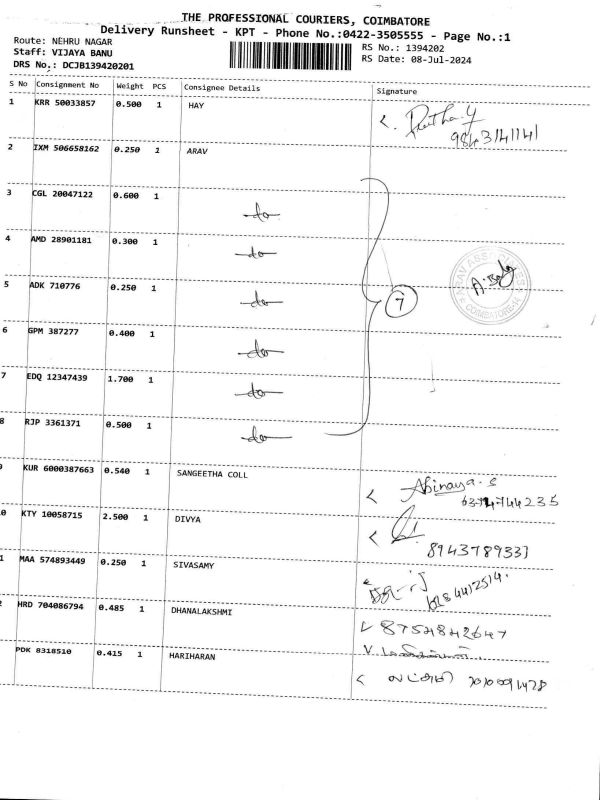 THE PROFESSIONAL COURIERS, COIMBATORE
Delivery Runsheet - KPT - Phone No.:0422-3505555 - Page No.:1
Route: NEHRU NAGAR
RS No.: 1394202
Staff: VIJAYA BANU
RS Date: 08-Jul-2024
DRS No.: DCJB139420201
S No Consignment No Weight PCS Consignee Details Signature
1 KRR 50033857 0.500 1 HAY
2 IXM 506658162 0.250 1 ARAV
3 CGL 20047122 0.600 1 do
4 AMD 28901181 0.300 1 do
5 ADK 710776 0.250 1 do
7
6 GPM 387277 0.400 1 do
7 EDQ 12347439 1.700 1 do
8 RJP 3361371 0.500 1 do
9 KUR 6000387663 0.540 1 SANGEETHA COLL Abinaya.S
0 KTY 10058715 2.500 1 DIVYA
8943789333
1 MAA 574893449 0.250 1 SIVASAMY
2 HRD 704086794 0.485 1 DHANALAKSHMI 8754842647
PDK 8318510 0.415 1 HARIHARAN